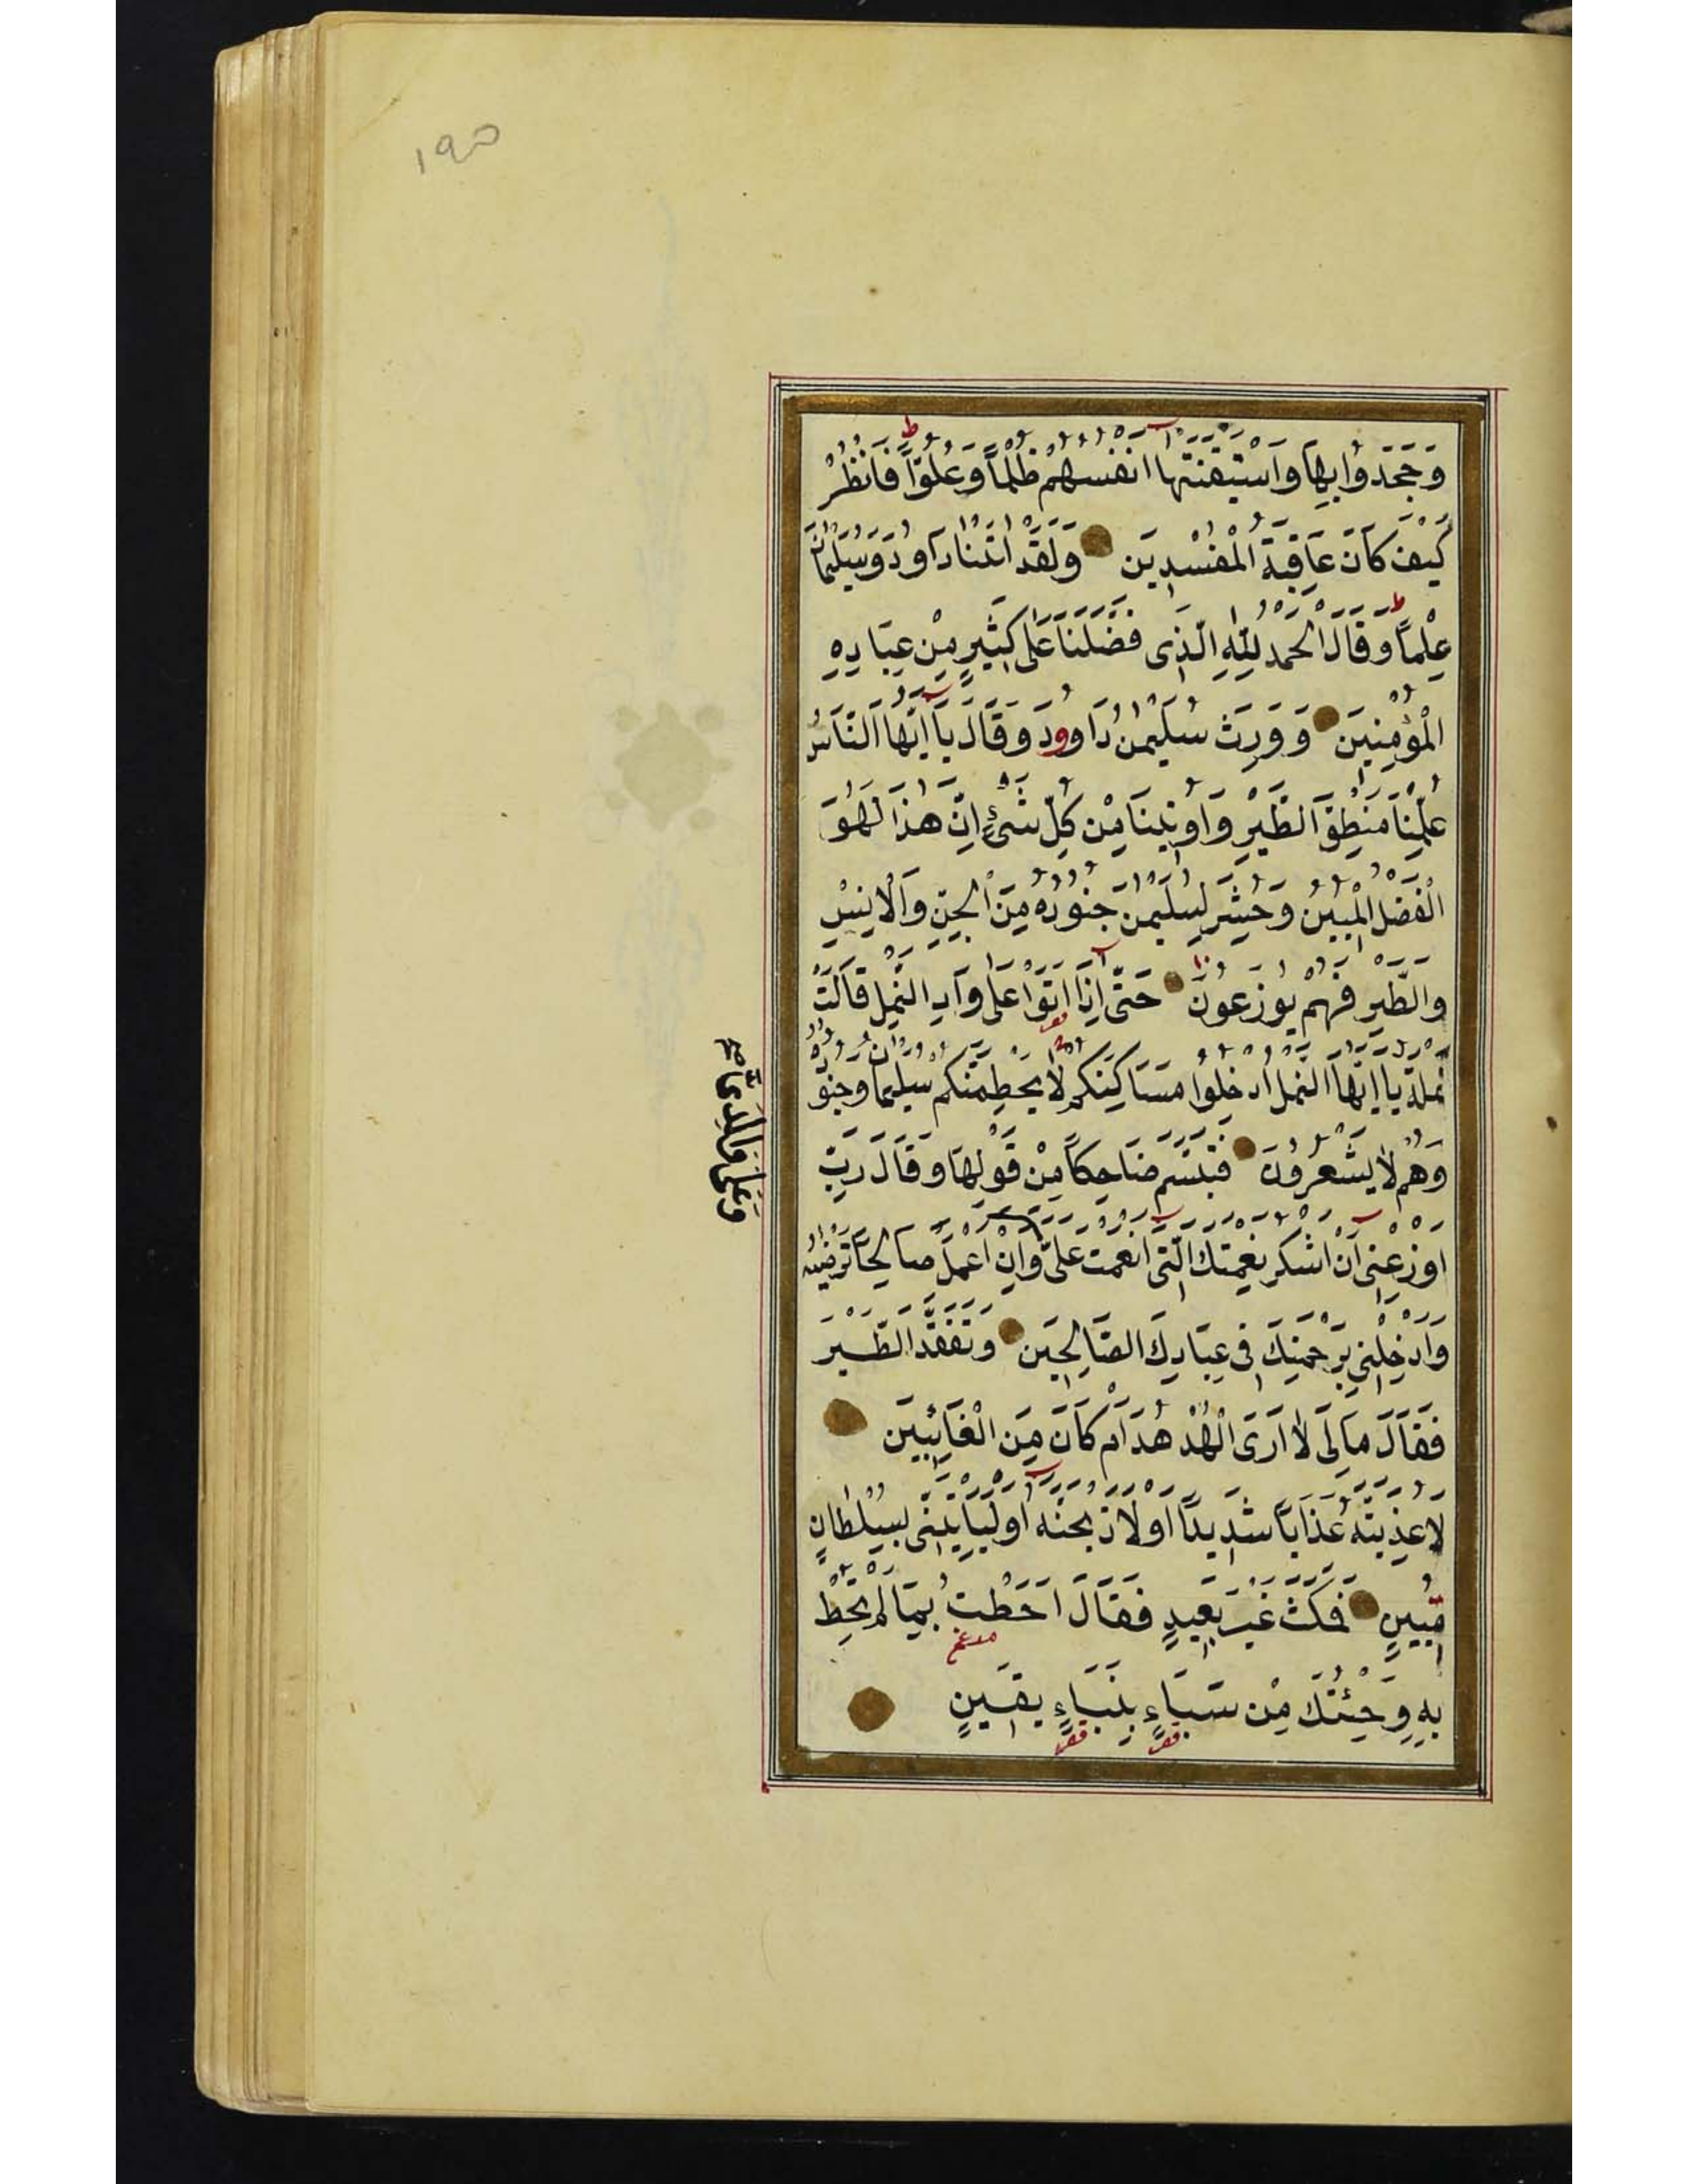 ۱۹۵
وَجَحَدُوا بِهَا وَاسْتَيْقَنَتْهَا اَنْفُسُهُمْ ظُلْمًا وَعُلُوًّا فَانْظُرْ
كَيْفَ كَانَ عَاقِبَةُ الْمُفْسِدِينَ وَلَقَدْ اٰتَيْنَا دَاوُدَ وَسُلَيْمَانَ
عِلْمًا وَقَالَا الْحَمْدُ لِلّٰهِ الَّذِى فَضَّلَنَا عَلٰى كَثِيرٍ مِنْ عِبَادِهِ
الْمُؤْمِنِينَ وَوَرِثَ سُلَيْمٰنُ دَاوُودَ وَقَالَ يَا اَيُّهَا النَّاسُ
عُلِّمْنَا مَنْطِقَ الطَّيْرِ وَاُوتِينَا مِنْ كُلِّ شَىْءٍ اِنَّ هٰذَا لَهُوَ
الْفَضْلُ الْمُبِينُ وَحُشِرَ لِسُلَيْمٰنَ جُنُودُهُ مِنَ الْجِنِّ وَالْاِنْسِ
وَالطَّيْرِ فَهُمْ يُوزَعُونَ حَتّٰى اِذَا اَتَوْا عَلٰى وَادِ النَّمْلِ قَالَتْ
نَمْلَةٌ يَا اَيُّهَا النَّمْلُ ادْخُلُوا مَسَاكِنَكُمْ لَا يَحْطِمَنَّكُمْ سُلَيْمَانُ وَجُنُودُهُ
وَهُمْ لَا يَشْعُرُونَ فَتَبَسَّمَ ضَاحِكًا مِنْ قَوْلِهَا وَقَالَ رَبِّ
اَوْزِعْنِى اَنْ اَشْكُرَ نِعْمَتَكَ الَّتِى اَنْعَمْتَ عَلَىَّ وَاَنْ اَعْمَلَ صَالِحًا تَرْضٰيهُ
وَعَلٰى وَالِدَىَّ صح
وَاَدْخِلْنِى بِرَحْمَتِكَ فِى عِبَادِكَ الصَّالِحِينَ وَتَفَقَّدَ الطَّيْرَ
فَقَالَ مَا لِىَ لَا اَرَى الْهُدْهُدَ اَمْ كَانَ مِنَ الْغَائِبِينَ
لَاُعَذِّبَنَّهُ عَذَابًا شَدِيدًا اَوْ لَاَذْبَحَنَّهُ اَوْ لَيَاْتِيَنِّى بِسُلْطَانٍ
مُبِينٍ فَمَكَثَ غَيْرَ بَعِيدٍ فَقَالَ اَحَطْتُ بِمَا لَمْ تُحِطْ
بِهِ وَجِئْتُكَ مِنْ سَبَاءٍ بِنَبَاءٍ يَقِينٍ